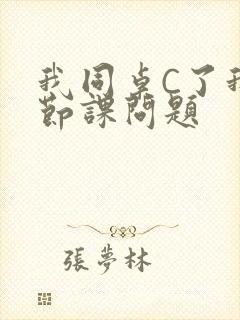 我同卓C了我
節課問題
張夢林